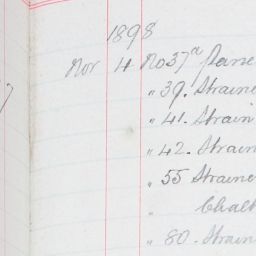 1898
Nov 4 No 37a Pane
" 39. Straine
" 41. Strain
" 42. Strain
" 55 Straine
" Chalk
" 80. Strain